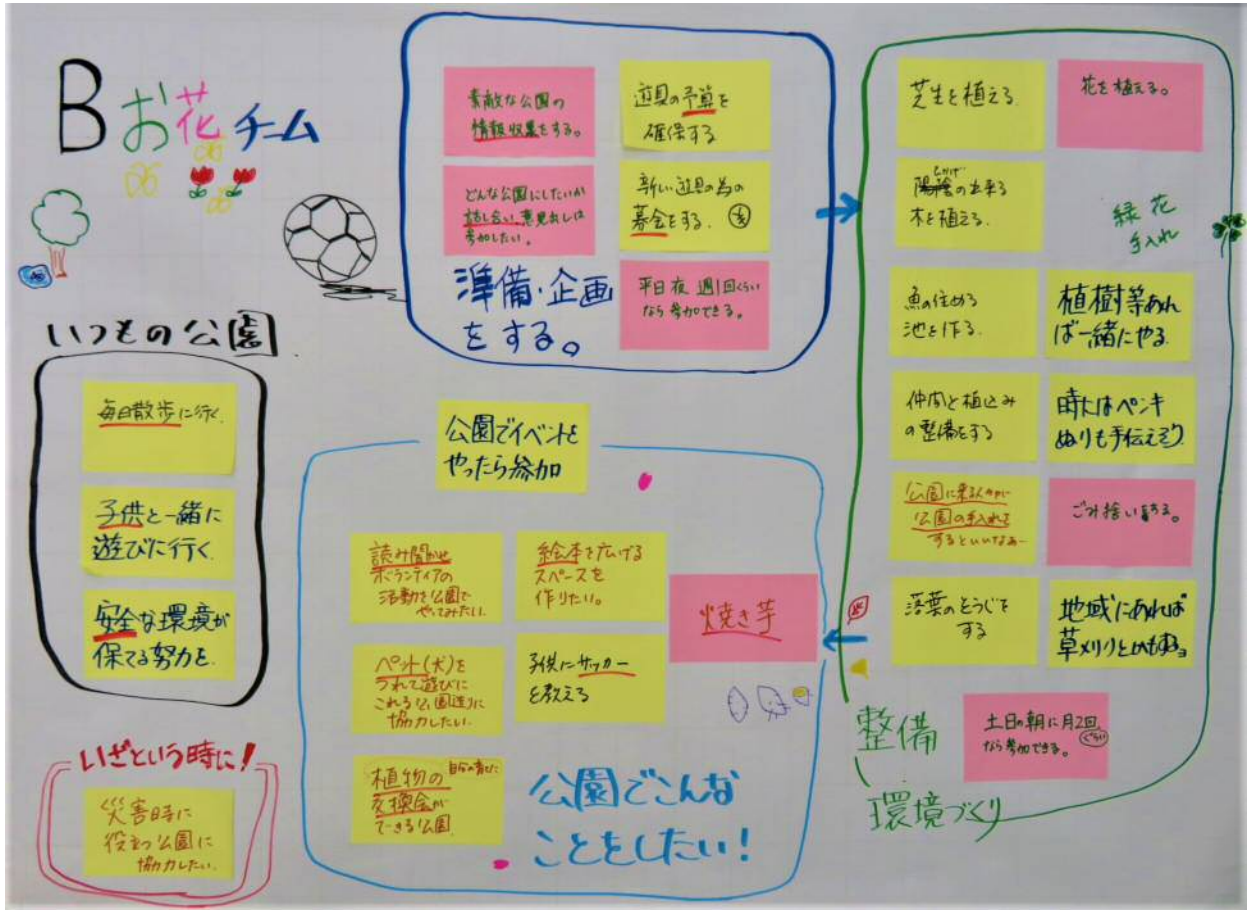 Bお花チーム
いつもの公園
毎日散歩に行く.
子供と一緒に
遊びに行く.
安全な環境が
保てる努力を.
いざという時に!
災害時に
役立つ公園に
協力したい.
素敵な公園の
情報収集をする。
遊具の予算を
確保する
どんな公園にしたいか
話し合い、意見出しは
参加したい。
新しい遊具の為の
募金をする.
準備・企画
をする。
平日夜 週1回くらい
なら参加できる。
公園でイベントを
やったら参加
読み聞かせ
ボランティアの
活動を公園で
やってみたい.
絵本を広げる
スペースを
作りたい。
焼き芋
ペット(犬)を
つれて遊びに
これる公園造りに
協力したい.
子供にサッカー
を教える
植物の
自分の育てた
交換会が
できる公園.
公園でこんな
ことをしたい!
芝生を植える.
花を植える。
ひかげ
の出来る
木を植える.
緑花
手入れ
魚の住める
池を作る.
植樹等あれ
ば一緒にやる.
仲間と植込み
の整備をする
時にはペンキ
ぬりも手伝えそう
公園に来る人々が
公園の手入れを
するといいなあー
ごみ捨い
落葉のそうじを
する
地域にあれば
整備
環境づくり
土日の朝に月2回
ぐらい
なら参加できる。